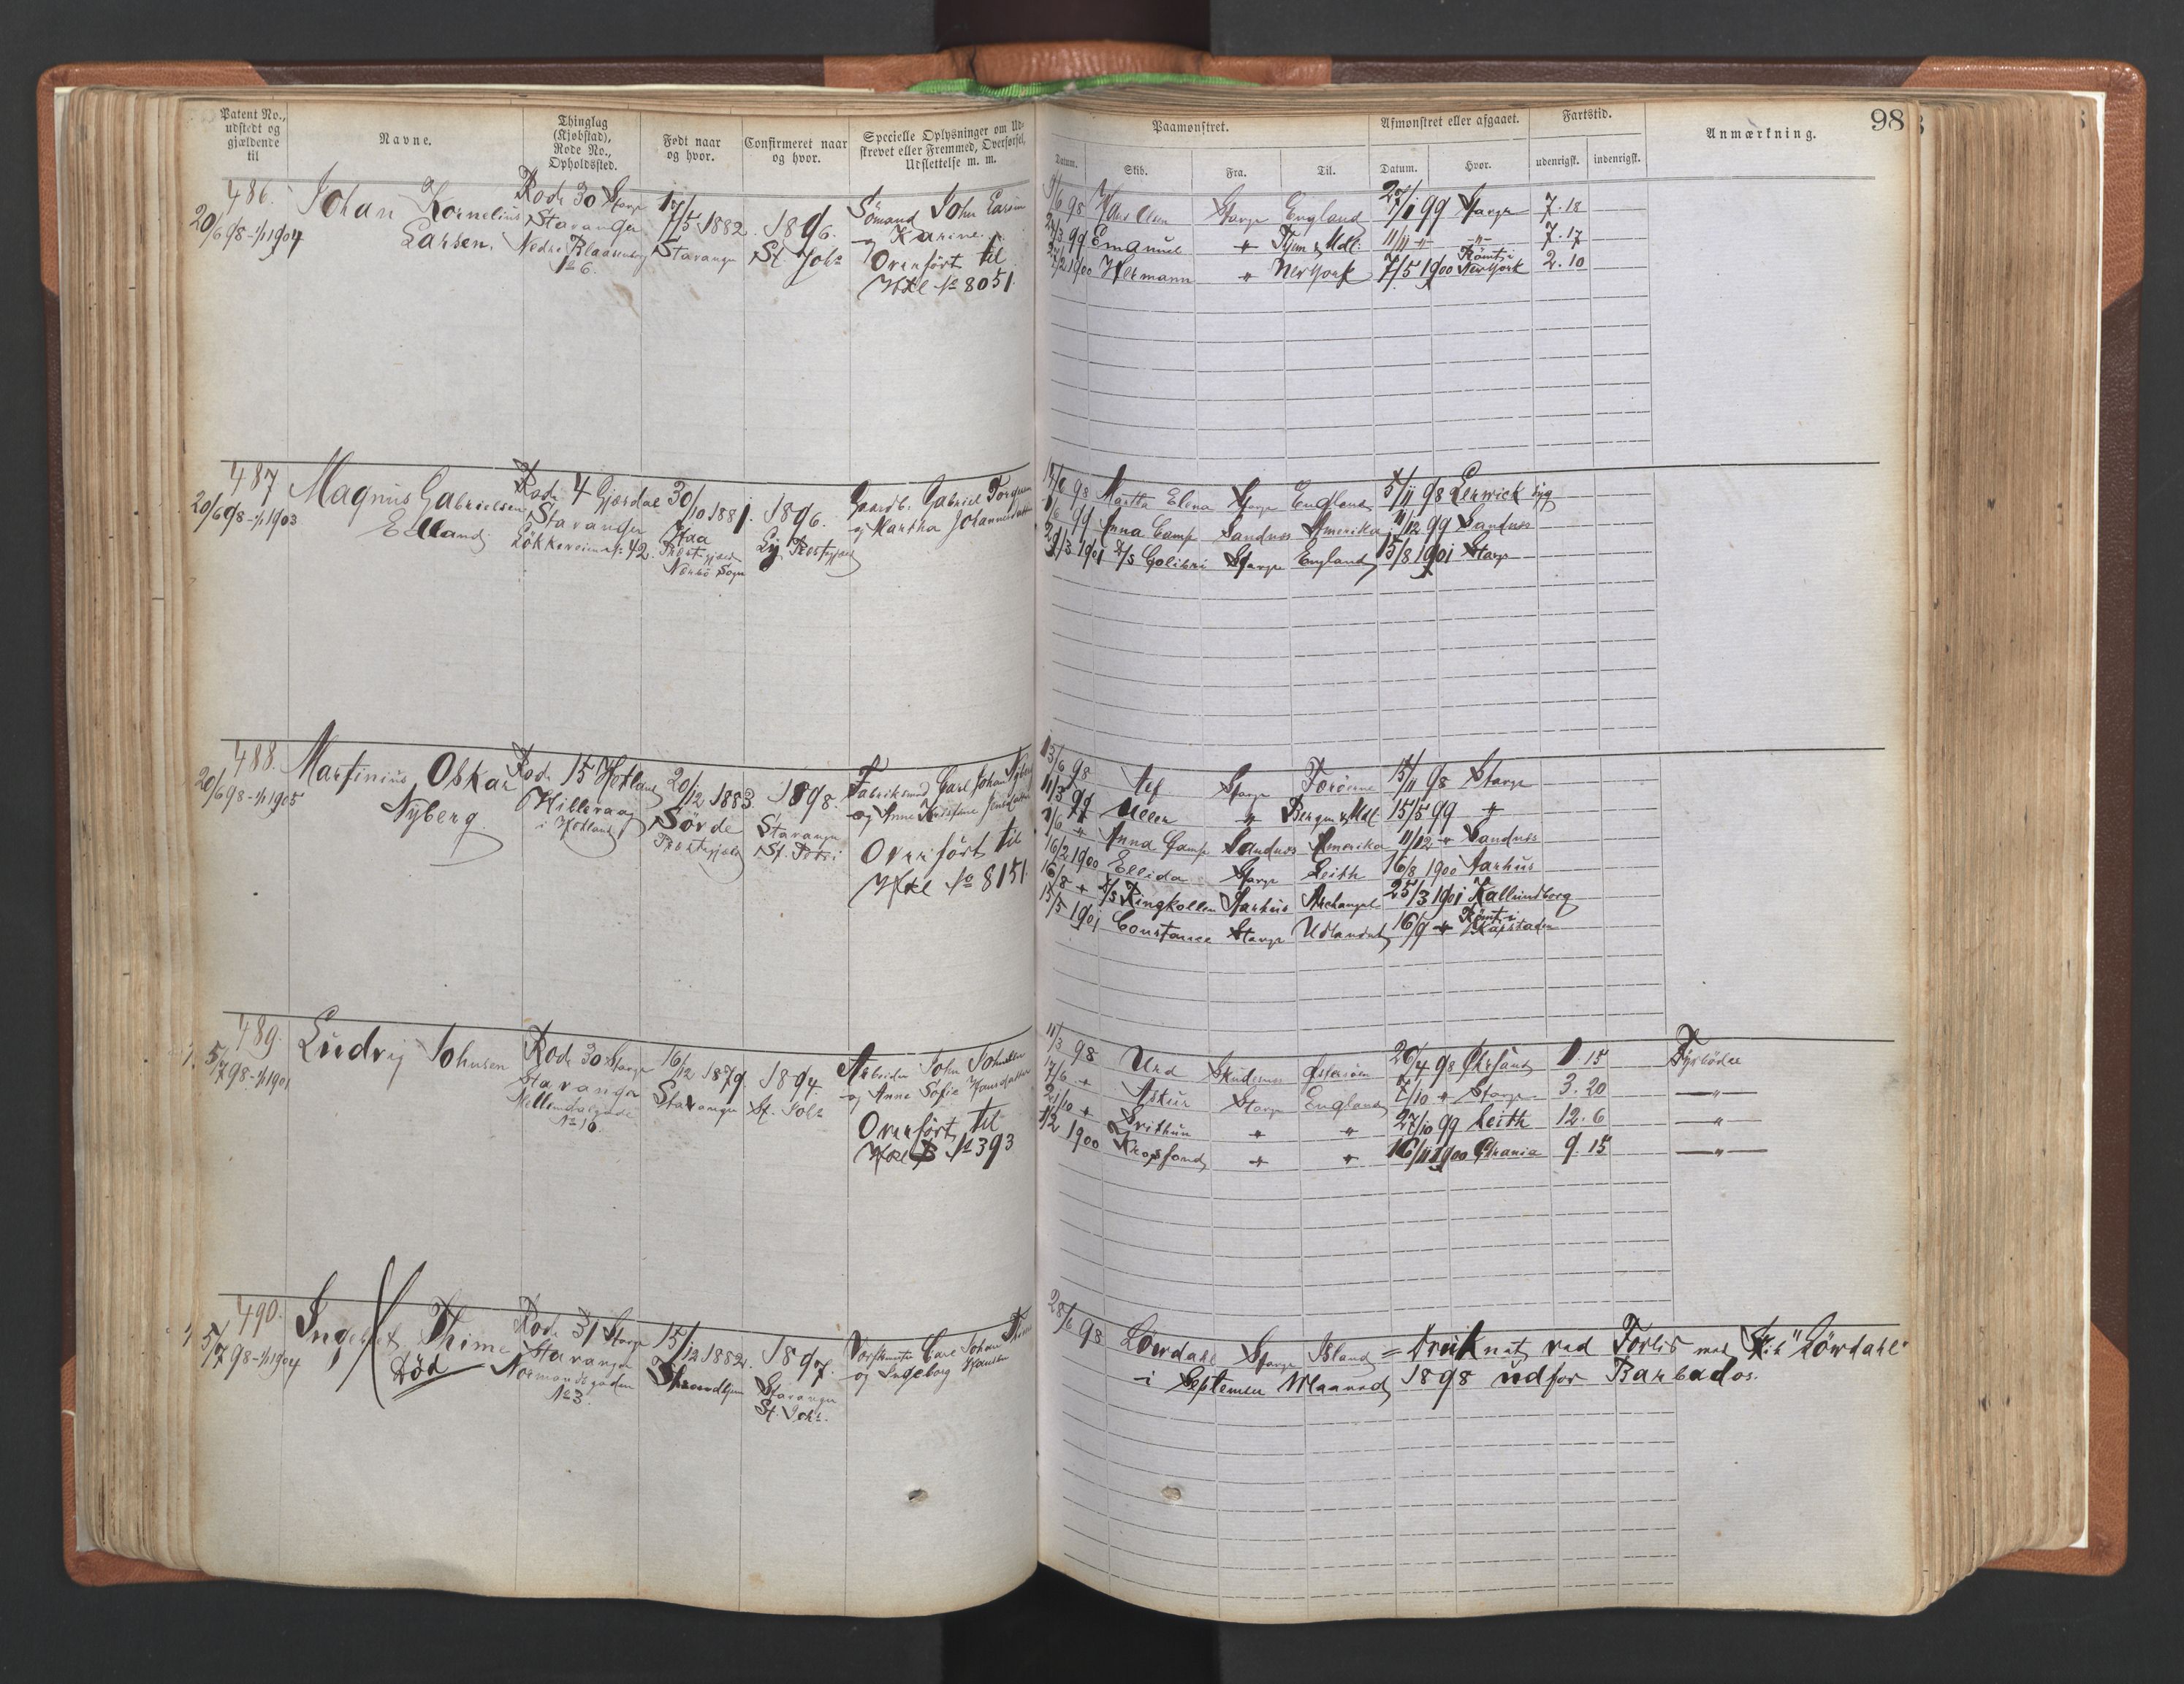 98
Patent No.,
udstedt og
gjældende
til
Navne.
Thinglag
(Kjøbstad),
Rode No.,
Opholdssted.
Født naar
og hvor.
Confirmeret naar
og hvor.
Specielle Oplysninger om Ud-
skrevet eller Fremmed, Overførsel,
Udslettelse m. m.
Paamønstret.
Afmønstret eller afgaaet.
Fartstid.
Anmærkning.
Datum.
Skib.
Fra.
Til.
Datum.
Hvor.
udenrigsk.
indenrigsk.
486.
20/6 98-1/1 1904
Johan Kornelius
Larsen.
Rode 30 Stavgr
Stavanger
Nedre Blaasenborg
No 6.
17/5 1882.
Stavanger
1896.
St. Joh:
Sömand John Larsen
og Karine
Overført til
Hxl No 8051.
9/6 98 Stavgr England 27/1 99 Stavgr 7.18
24/3 99 Emanuel " 11/11 " -"- 7.17
27/2 1900 Hermann " NewYork 7/5 1900 Römt i NewYork 2.10
487
20/6 98-1/1 1903
Magnus Gabrielsen
Edland
Rode 4 Gjesdal
Stavanger
Lökkeveien No 42.
30/10 1881.
Haa
Præstegjæld
Nærbö Sogn
1896.
Ly Præstegjæld
Gaardb. Gabriel
og Martha Johannesdatter
17/6 98 Martha Elena Stavgr England 5/11 98 Lerwick syg
1/6 99 Anna Camp Sandnes Amerika 11/12 99 Sandnes
21/3 1901 S/S Colibri Stavgr England 15/8 1901 Stavgr
488.
20/6 98-1/1 1905
Martinius Oskar
Nyberg.
Rode 15 Hetland
Hillevaag
i Hetland
20/12 1883.
Sörde
Præstegjæld
1898.
Stavanger
St. Petri
Fabriksmed Carl Johan Nyberg
og Anne
Overført til
Hxl No 8151.
13/6 98 Stavgr 15/11 98 Stavgr
11/3 99 Ellen " Bergen & Mdl: 15/5 99 "
1/6 " Anna Camp Sandnes Amerika 11/12 " Sandnes
16/2 1900 Ellida Stavgr Leith 16/8 1900 Aarhus
16/8 " S/S Ringkollen Aarhus Archangel 25/3 1901 Kallundborg
15/5 1901 Constance Stavgr Udlandet 16/9 " Römt i Kapstaden
489.
5/7 98-1/1 1901
Ludvig Johnsen
Rode 30 Stavgr
Stavanger
No 16.
16/12 1879.
Stavanger
1894.
St. Joh:
Arbeider John Johnsen
og Anne Sofie Hansdatter
Overført til
Hxl B No 393
11/3 98 Urd Skudesnes Östersöen 26/4 98 Chrsand 1.15 Fyrböder
17/6 " Stavgr England 7/10 " Stavgr 3.20 -"-
21/10 " Svithun " " 27/10 99 Leith 12.6 -"-
1/2 1900 Kropfond " " 16/11 1900 Chrania 9.15 -"-
490.
5/7 98-1/1 1904
Ingolf Thime
död
Rode 31 Stavgr
Stavanger
Normandsgaden
No 3.
15/12 1882.
Throndhjem
1897.
Stavanger
St. Joh:
Carl Johan Thime
og Ingeborg Hansen
28/6 98 Lövdahl Stavgr Island = druknet ved Forlis med Skib "Lövdahl"
i September Maaned 1898 udfor Barbados.